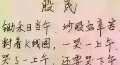 股民
锄禾日当午 炒股好辛苦
对着长线图 一哭一上午
哭了一上午 还要哭下午